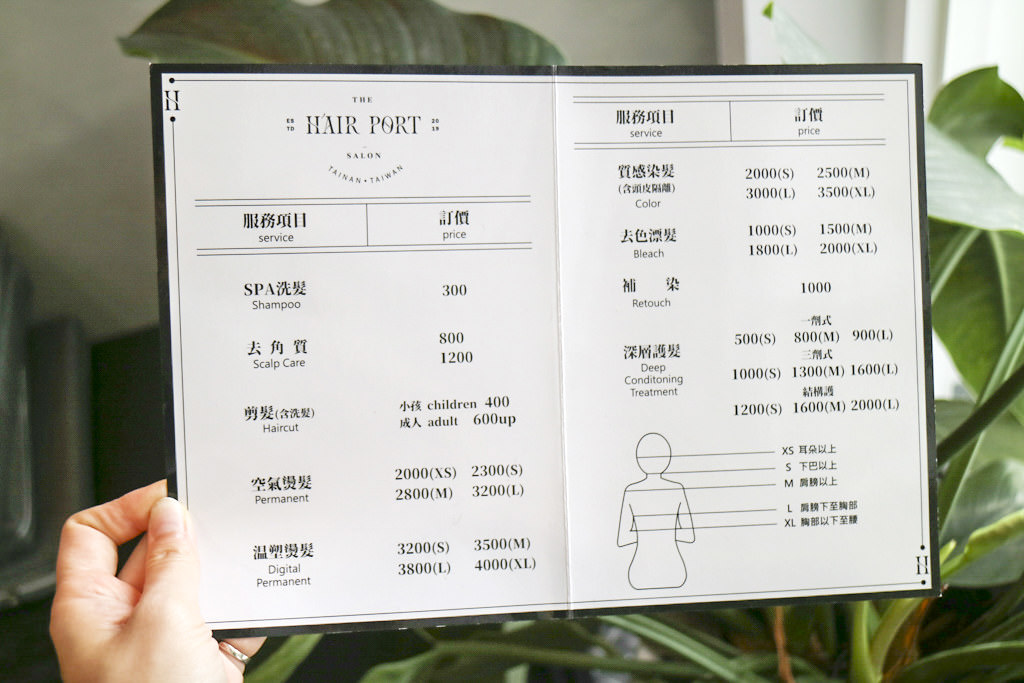 H
THE
ES
TD
HAIR PORT
20
19
SALON
TAINAN • TAIWAN
服務項目
訂價
service
price
SPA洗髮
300
Shampoo
去角質
800
Scalp Care
1200
剪髮(含洗髮)
小孩 children 400
Haircut
成人 adult 600up
空氣燙髮
2000(XS) 2300(S)
Permanent
2800(M) 3200(L)
温塑燙髮
3200(S) 3500(M)
Digital
3800(L) 4000(XL)
Permanent
服務項目
訂價
service
price
質感染髮
2000(S) 2500(M)
(含頭皮隔離)
3000(L) 3500(XL)
Color
去色漂髮
1000(S) 1500(M)
Bleach
1800(L) 2000(XL)
補 染
1000
Retouch
一劑式
500(S) 800(M) 900(L)
深層護髮
三劑式
Deep
1000(S) 1300(M) 1600(L)
Conditoning
結構護
Treatment
1200(S) 1600(M) 2000(L)
XS 耳朵以上
S 下巴以上
M 肩膀以上
L 肩膀下至胸部
XL 胸部以下至腰
H